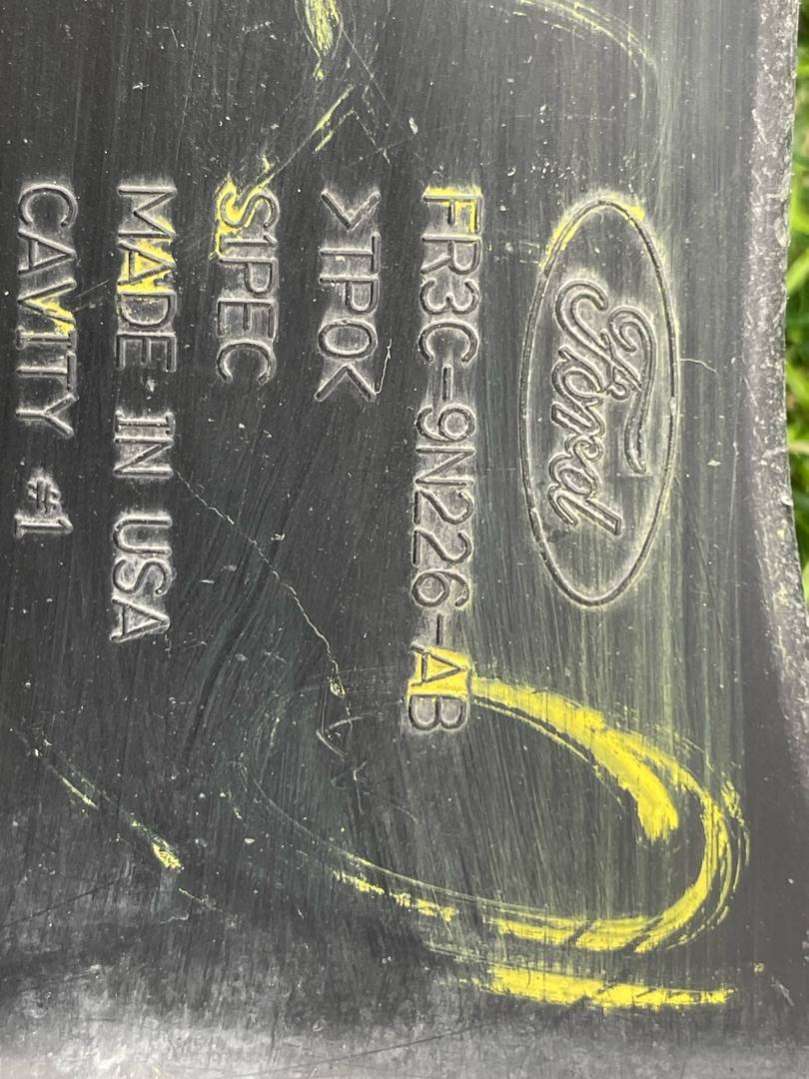 Ford
FR3C-9N226-AB
>TPO<
SIPEC
MADE IN USA
CAVITY #1